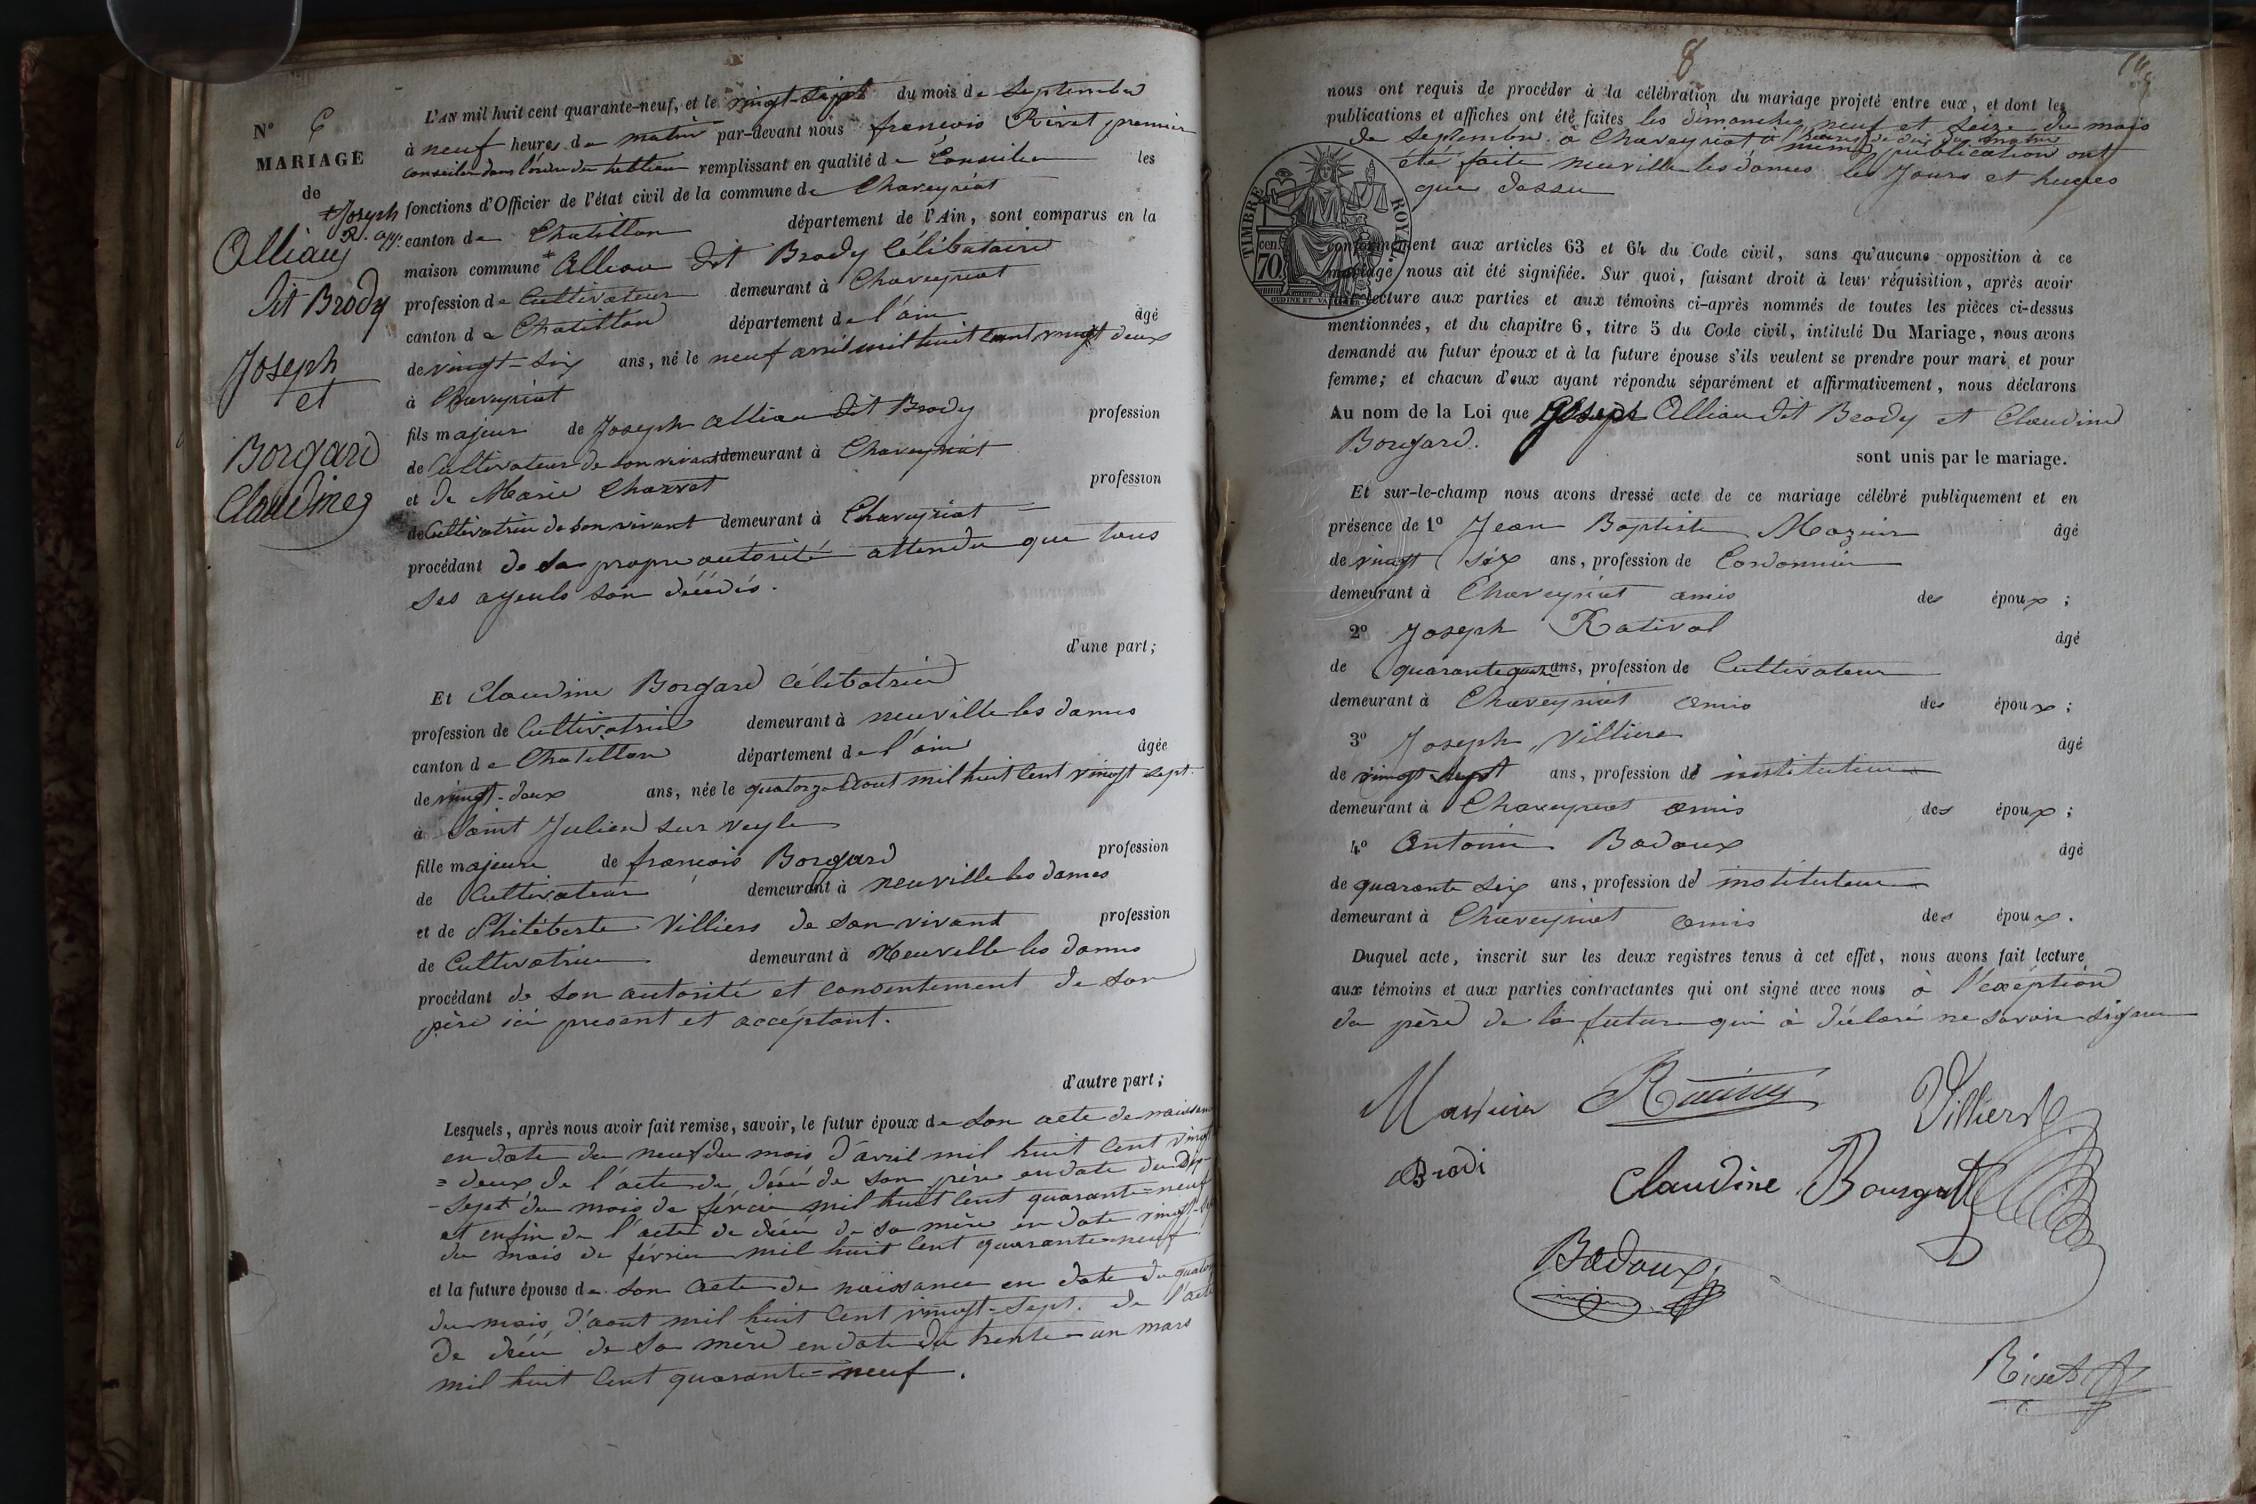 N° 6
MARIAGE
de
Alliau
dit Brody
Joseph
et
Borgard
Claudine
+ Joseph
R. app.
L'AN mil huit cent quarante-neuf, et le vingt-sept du mois de Septembre
à neuf heures du matin par-devant nous françois Rivet premier
conseiler dans l'ordre du tableau remplissant en qualité de Conseiler les
fonctions d'Officier de l'état civil de la commune de Chaveyriat
canton de Chatillon département de l'Ain, sont comparus en la
maison commune * Alliau dit Brody Célibataire
profession de Cultivateur demeurant à Chaveyriat
canton de Chatillon département de l'ain âgé
de vingt-six ans, né le neuf avril mil huit cent vingt deux
à Chaveyriat
fils majeur de Joseph alliau dit Brody profession
de Cultivateur de son vivant demeurant à Chaveyriat
et de Marie Charvet profession
de Cultivatrice de son vivant demeurant à Chaveyriat
procédant de sa propre autorité attendu que tous
ses ayeuls son décédés.
d'une part;
Et Claudine Borgard Célibatrice
profession de Cultivatrice demeurant à neuville les dames
canton de Chatillon département de l'ain âgée
de vingt-deux ans, née le quatorze aout mil huit cent vingt sept.
à Saint Julien sur veyle
fille majeure de françois Borgard profession
de Cultivateur demeurant à neuville les dames
et de Philiberte Villiers de son vivant profession
de Cultivatrice demeurant à Neuville les dames
procédant de son autorité et consentement de son
père ici present et acceptant.
d'autre part;
Lesquels, après nous avoir fait remise, savoir, le futur époux de son acte de naissance
en date du neuf du mois d'avril mil huit cent vingt
= deux de l'acte de décé de son père en date du dix
- sept du mois de février mil huit cent quarante=neuf
et enfin de l'acte de décé de sa mère en date vingt-
du mois de février mil huit cent quarante=neuf
et la future épouse de son acte de naissance en date du quatorze
du mois d'aout mil huit cent vingt-sept. de l'acte
de décé de sa mère en date du trente-un mars
mil huit cent quarante=neuf.
8
nous ont requis de procéder à la célébration du mariage projeté entre eux, et dont les
publications et affiches ont été faites les dimanches neuf et seize du mois
de septembre à Chaveyriat à
même publication ont
été faite neuville les dames les Jours et heures
que dessu
TIMBRE ROYAL.
cen. 70.
conformément aux articles 63 et 64 du Code civil, sans qu'aucune opposition à ce
mariage nous ait été signifiée. Sur quoi, faisant droit à leur réquisition, après avoir
fait lecture aux parties et aux témoins ci-après nommés de toutes les pièces ci-dessus
mentionnées, et du chapitre 6, titre 5 du Code civil, intitulé Du Mariage, nous avons
demandé au futur époux et à la future épouse s'ils veulent se prendre pour mari et pour
femme; et chacun d'eux ayant répondu séparément et affirmativement, nous déclarons
Au nom de la Loi que Joseph Alliau dit Brody et Claudine
Borgard.
sont unis par le mariage.
Et sur-le-champ nous avons dressé acte de ce mariage célébré publiquement et en
présence de 1° Jean Baptiste Mazuir âgé
de vingt six ans, profession de Cordonnier
demeurant à Chaveyriat amis des époux;
2° Joseph Rativol âgé
de ans, profession de Cultivateur
demeurant à Chaveyriat amis des époux;
3° Joseph Villiers âgé
de vingt sept ans, profession de instituteur
demeurant à Chaveyriat amis des époux;
4° Antoine Badoux âgé
de quarante six ans, profession de instituteur
demeurant à Chaveyriat amis des époux.
Duquel acte, inscrit sur les deux registres tenus à cet effet, nous avons fait lecture
aux témoins et aux parties contractantes qui ont signé avec nous à l'exéption
du père de la future qui à déclaré ne savoir signer
Villiers
Brodi
Claudine
Badoux
Rivet